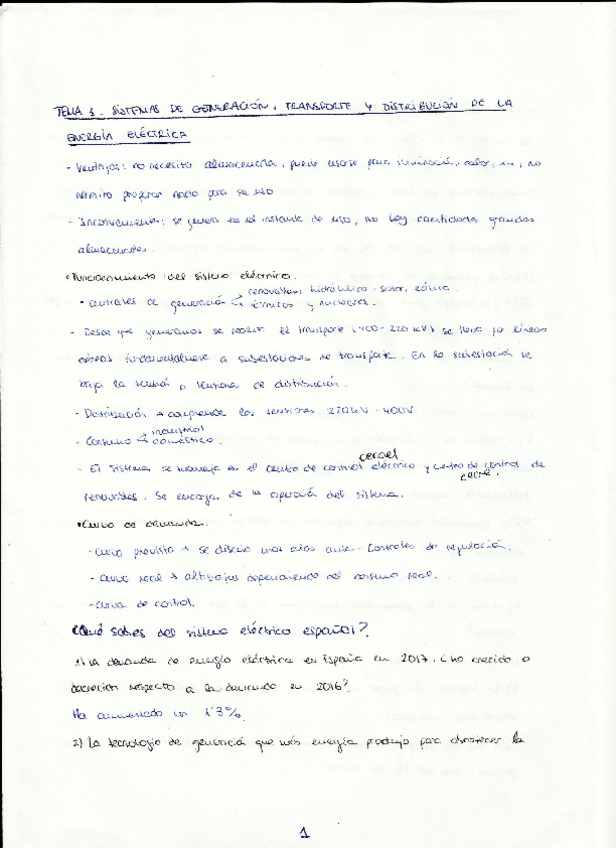 TEMA 1. SISTEMAS DE GENERACIÓN, TRANSPORTE Y DISTRIBUCIÓN DE LA
ENERGÍA ELÉCTRICA
- Ventajas: no necesita almacenarla, puede usarse para iluminación, calor, ..., no
necesito preparar nada para su uso
- Inconvenientes: se genera en el instante de uso, no hay cantidades grandes
almacenadas.
• Funcionamiento del sistema eléctrico.
• Centrales de generación → renovables: hidráulica - solar, eólica.
→ térmicas y nucleares.
- Desde que generamos se realiza el transporte (400 - 220 kV) se lleva por líneas
aéreas fundamentalmente a subestaciones de transporte. En la subestación se
baja la tensión a tensiones de distribución.
- Distribución → comprende las tensiones 220kV - 400V
- Consumo → industrial
→ doméstico.
- El sistema se maneja en el centro de control cecoel eléctrico y centro de control de
renovables. cecre. Se encarga de la operación del sistema.
• Curva de demanda.
- Curva prevista → se diseña unos años antes. Controles de regulación.
- Curva real → altibajos dependiendo del consumo real.
- Curva de control.
¿Qué sabes del sistema eléctrico español?
1) La demanda de energía eléctrica en España en 2017. ¿Ha crecido o
decrecido respecto a la demanda en 2016?
Ha aumentado un 1'3%.
2) La tecnología de generación que más energía produjo para abastecer la
1